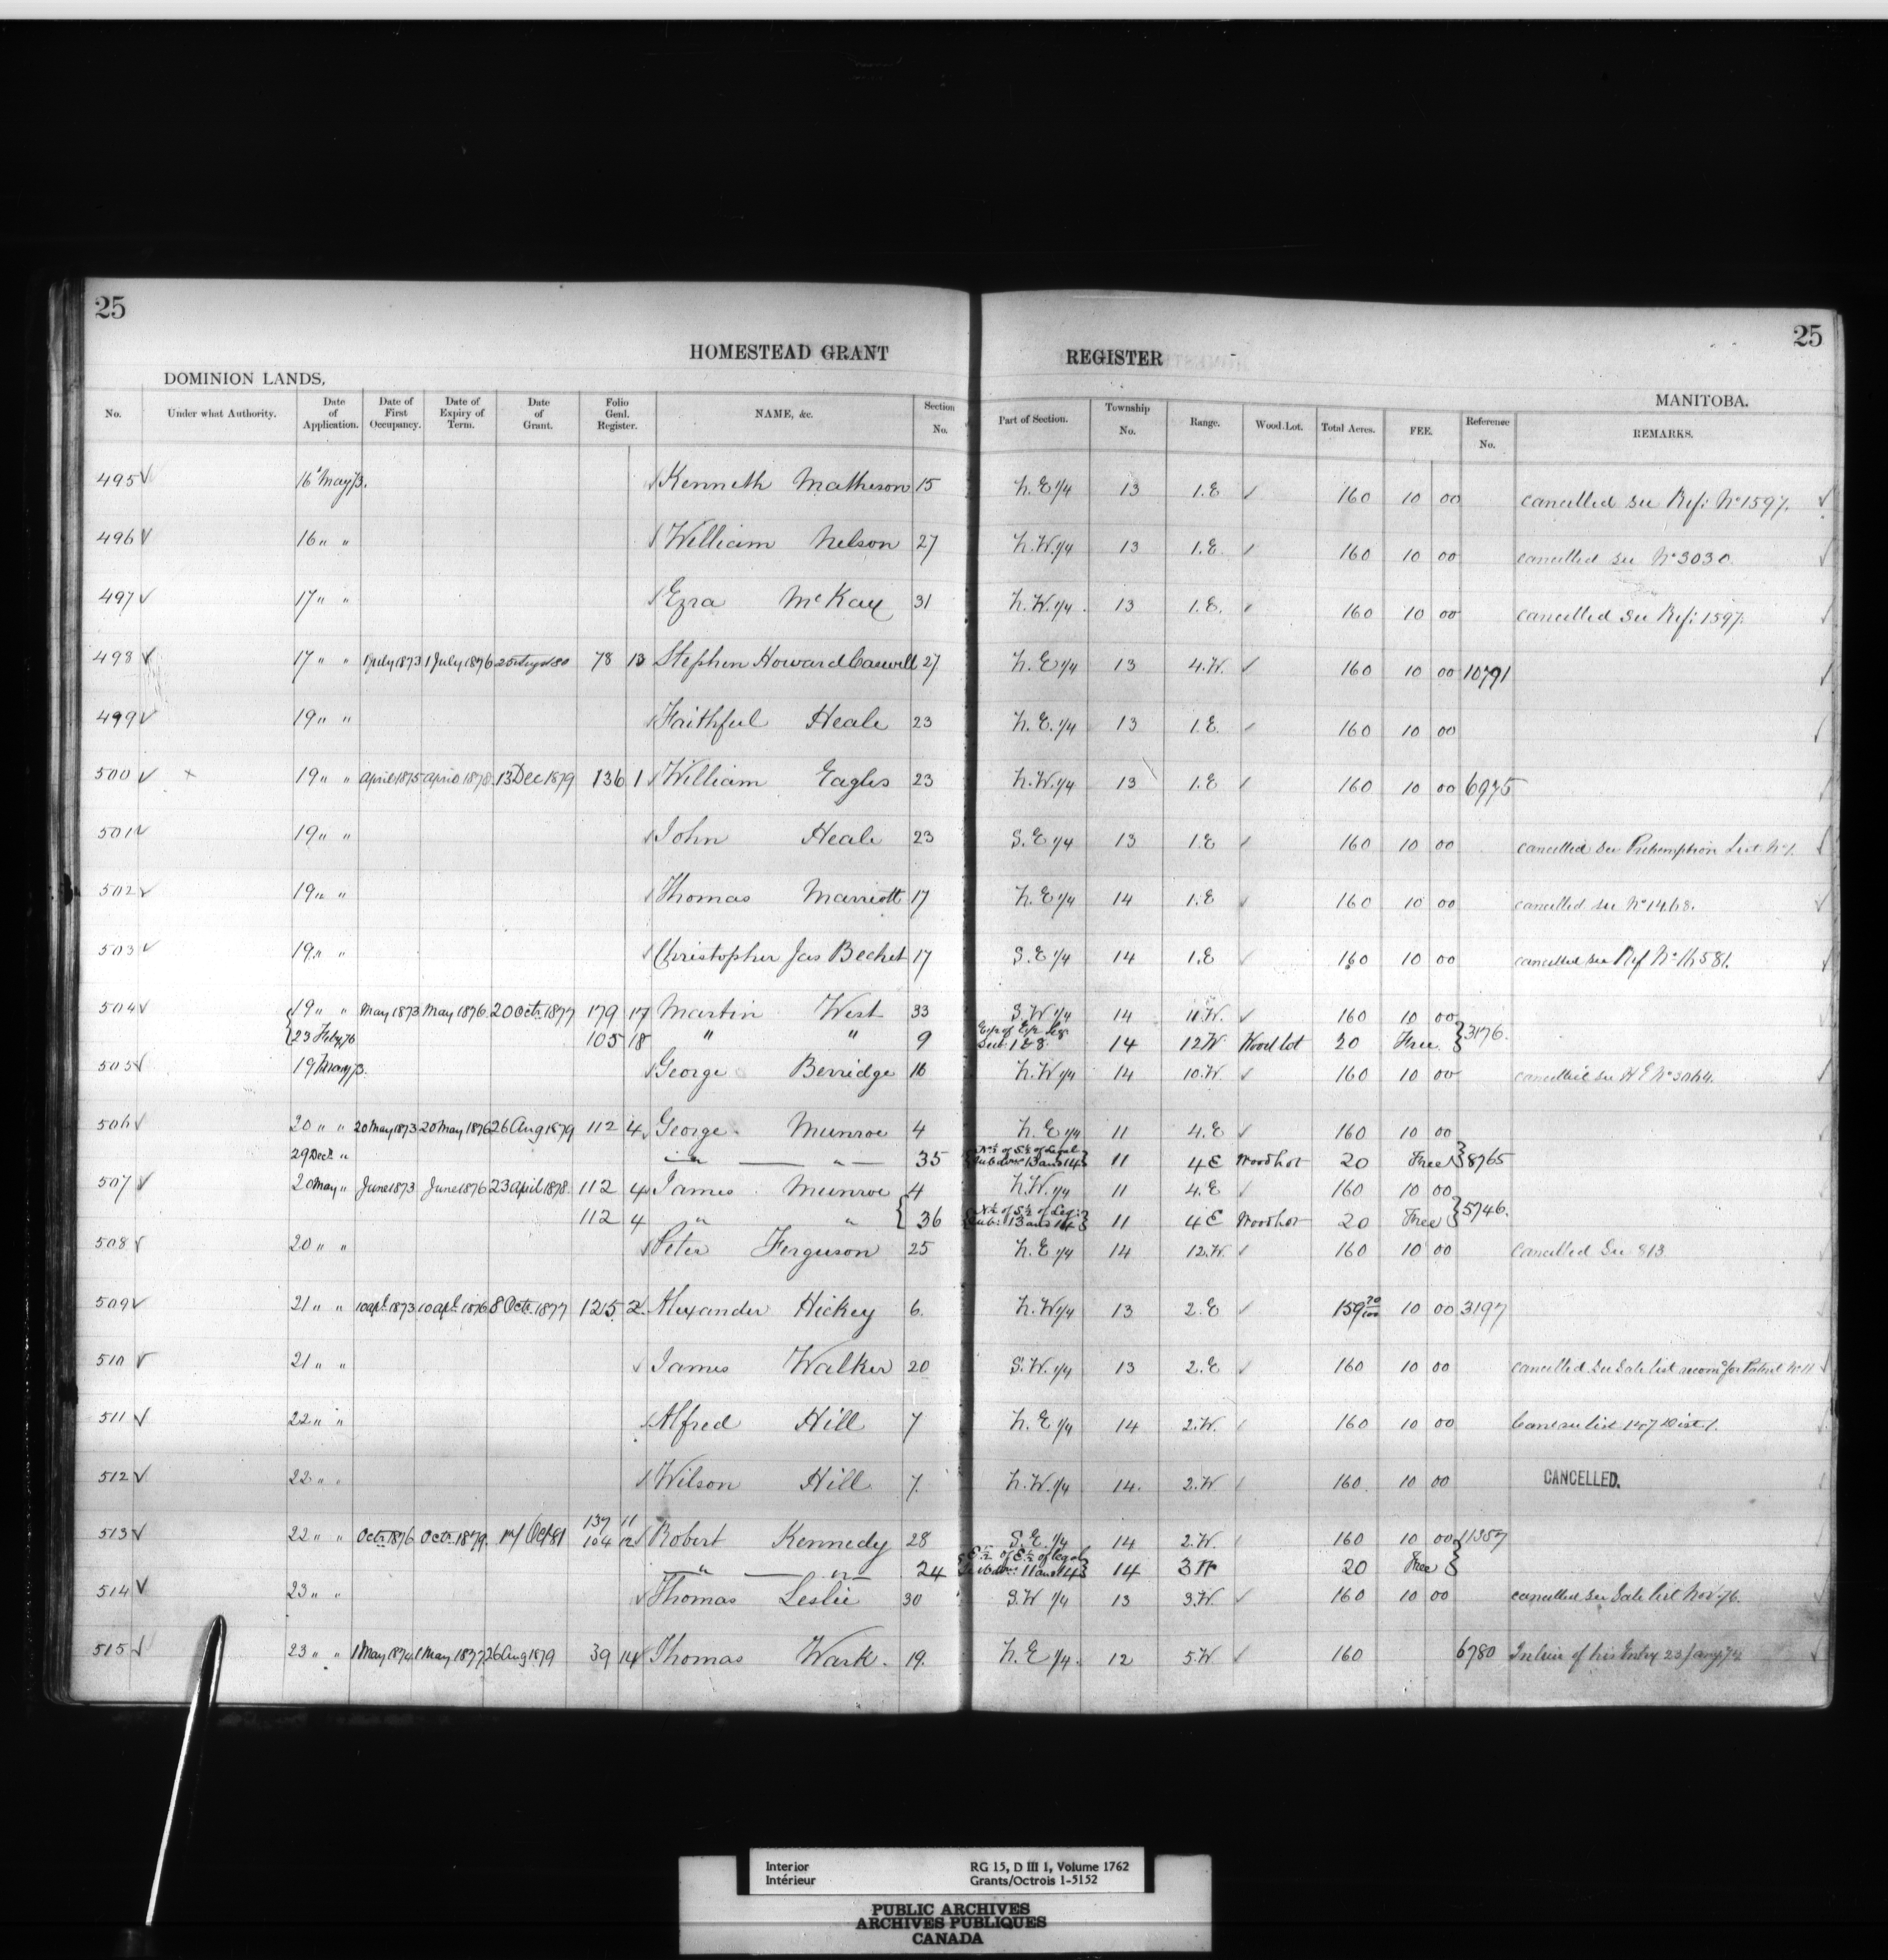 25
25
HOMESTEAD GRANT REGISTER
DOMINION LANDS, MANITOBA.
No. Under what Authority. Date of Application. Date of First Occupancy. Date of Expiry of Term. Date of Grant. Folio Genl. Register. NAME, &c. Section No. Part of Section. Township No. Range. Wood Lot. Total Acres. FEE. Reference No. REMARKS.
495 ✓ 16 May 73. Kenneth Matheson 15 N.E 1/4 13 1.E ✓ 160 10 00 cancelled see Ref: No 1597. ✓
496 ✓ 16 " " William Nelson 27 N.W. 1/4 13 1.E. ✓ 160 10 00 cancelled see No 3030 ✓
497 ✓ 17 " " Ezra McKay 31 N.W. 1/4 13 1.E. ✓ 160 10 00 cancelled see Ref: 1597. ✓
498 ✓ 17 " " 1 July 1873 1 July 1876 78 13 Stephen Howard Caswell 27 N.E 1/4 13 4.W. ✓ 160 10 00 10791 ✓
499 ✓ 19 " " Faithful Heale 23 N.E. 1/4 13 1.E. ✓ 160 10 00 ✓
500 ✓ x 19 " " April 1875 April 1878 13 Dec 1879 136 1 William Eagles 23 N.W. 1/4 13 1.E ✓ 160 10 00 6975 ✓
501 ✓ 19 " " John Heale 23 S.E 1/4 13 1.E ✓ 160 10 00 cancelled see Preemption List No 1. ✓
502 ✓ 19 " " Thomas Marriott 17 N.E 1/4 14 1.E ✓ 160 10 00 cancelled see No 1468. ✓
503 ✓ 19 " " Christopher Jas Bechet 17 S.E 1/4 14 1.E ✓ 160 10 00 cancelled see Ref No ✓
504 ✓ { 19 " " May 1873 May 1876 20 Octr 1877 179 17 Martin West 33 S.W 1/4 14 11.W. ✓ 160 10 00 } 3176.
{ 23 Feby 76 105 18 " " 9 14 12W Wood lot 20 Free
505 ✓ 19 May 73. George Berridge 16 N.W 1/4 14 10.W. ✓ 160 10 00 cancelled see H E No 3064. ✓
506 ✓ 20 " " 20 May 1873 20 May 1876 26 Aug 1879 112 4 George Munroe 4 N.E 1/4 11 4.E ✓ 160 10 00
29 Decr " " " 35 { N½ of S½ of Legal Subdivs 13 and 14 } 11 4E Woodlot 20 Free } 8765
507 ✓ 20 May " June 1873 June 1876 23 April 1878 112 4 James Munroe 4 N.W. 1/4 11 4.E ✓ 160 10 00
112 4 " " { 36 { N½ of S½ of Leg: Sub: 13 and 14 } 11 4E Woodlot 20 Free } 5746.
508 ✓ 20 " " Peter Ferguson 25 N.E 1/4 14 12.W. ✓ 160 10 00 Cancelled See 813 ✓
509 ✓ 21 " " 10 apl. 1873 10 apl. 1876 8 Octr. 1877 125 2 Alexander Hickey 6. N.W 1/4 13 2.E ✓ 159 70/100 10 00 3197
510 ✓ 21 " " James Walker 20 S.W. 1/4 13 2.E ✓ 160 10 00 cancelled see Sale list recomd for Patent No 11 ✓
511 ✓ 22 " " Alfred Hill 7 N.E 1/4 14 2.W. 160 10 00 Canc see list 147 Dist 1.
512 ✓ 22 " " Wilson Hill 7. N.W. 1/4 14. 2.W 160 10 00 CANCELLED.
137 11
513 ✓ 22 " " Octr. 1876 Octr. 1879. 17 Oct 81 104 12 Robert Kennedy 28 S.E. 1/4 14 2.W. 160 10 00 } 11357
" " 24 { E½ of E½ of legal Subdivs: 11 and 14 } 14 3W 20 Free
514 ✓ 23 " " Thomas Leslie 30 S.W 1/4 13 3.W. ✓ 160 10 00 cancelled see Sale list Nov. 76.
515 ✓ 23 " " 1 May 1874 1 May 1877 26 Aug 1879 39 14 Thomas Wark. 19. N.E 1/4. 12 5.W ✓ 160 6780 In lieu of his Entry 23 Jany 74 ✓
Interior RG 15, D III 1, Volume 1762
Intérieur Grants/Octrois 1-5152
PUBLIC ARCHIVES
ARCHIVES PUBLIQUES
CANADA